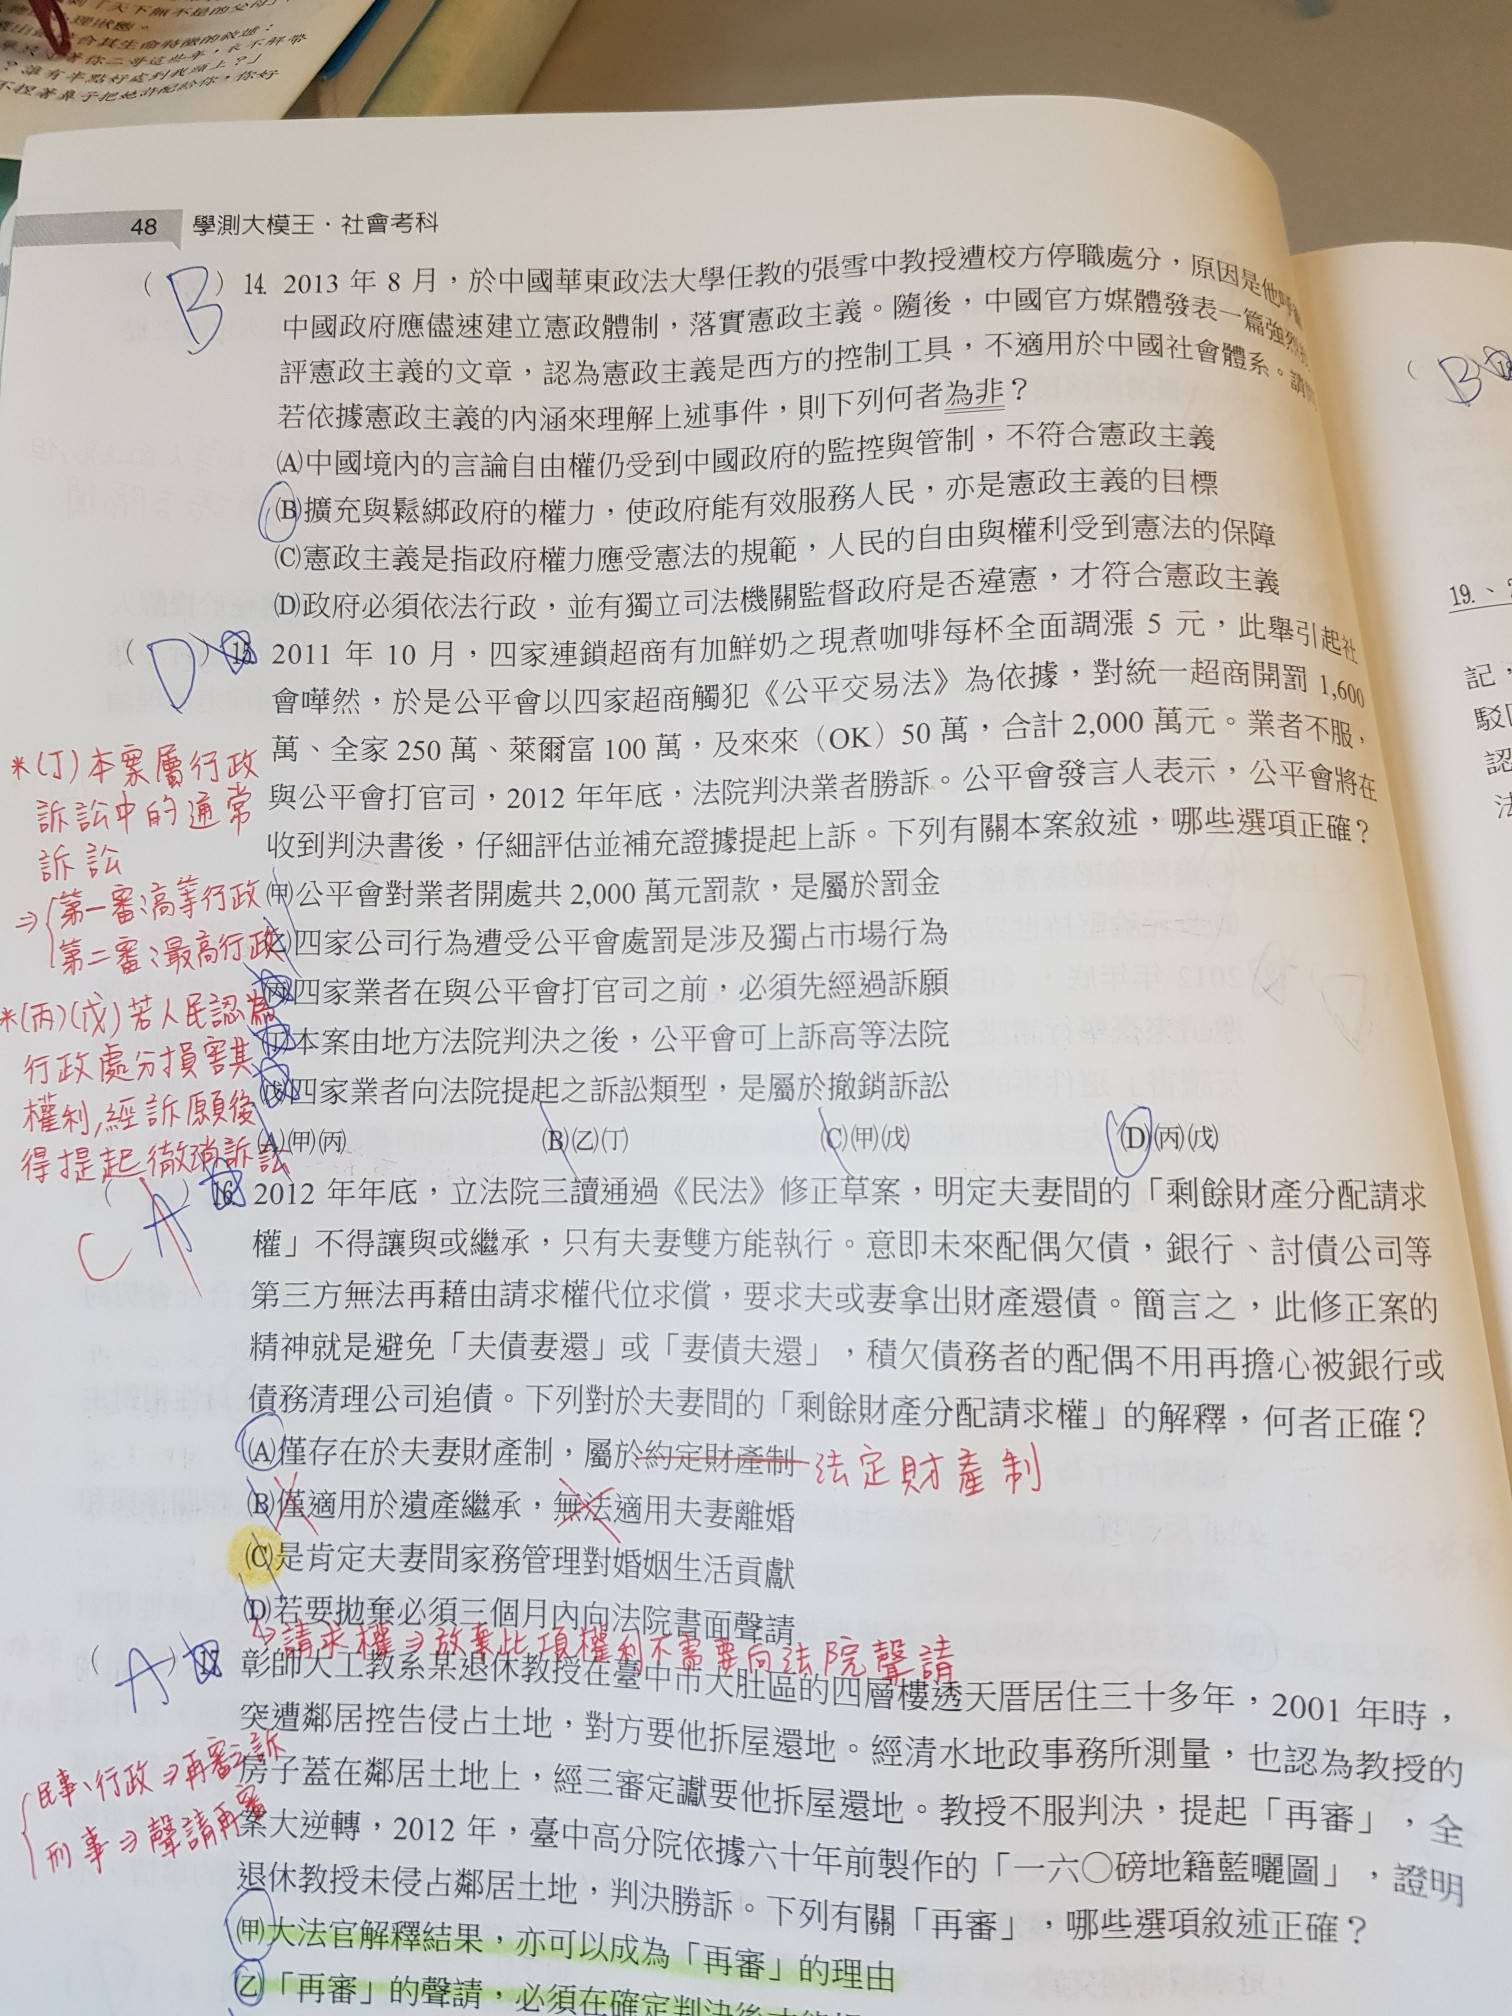 48 學測大模王.社會考科
( B ) 14. 2013 年 8 月，於中國華東政法大學任教的張雪中教授遭校方停職處分，原因是他呼籲
中國政府應儘速建立憲政體制，落實憲政主義。隨後，中國官方媒體發表一篇強烈
評憲政主義的文章，認為憲政主義是西方的控制工具，不適用於中國社會體系。請
若依據憲政主義的內涵來理解上述事件，則下列何者為非？
(A)中國境內的言論自由權仍受到中國政府的監控與管制，不符合憲政主義
(B)擴充與鬆綁政府的權力，使政府能有效服務人民，亦是憲政主義的目標
(C)憲政主義是指政府權力應受憲法的規範，人民的自由與權利受到憲法的保障
(D)政府必須依法行政，並有獨立司法機關監督政府是否違憲，才符合憲政主義
( D ) 15. 2011 年 10 月，四家連鎖超商有加鮮奶之現煮咖啡每杯全面調漲 5 元，此舉引起社
會嘩然，於是公平會以四家超商觸犯《公平交易法》為依據，對統一超商開罰 1,600
萬、全家 250 萬、萊爾富 100 萬，及來來（OK）50 萬，合計 2,000 萬元。業者不服，
與公平會打官司，2012 年年底，法院判決業者勝訴。公平會發言人表示，公平會將在
收到判決書後，仔細評估並補充證據提起上訴。下列有關本案敘述，哪些選項正確？
(甲)公平會對業者開處共 2,000 萬元罰款，是屬於罰金
(乙)四家公司行為遭受公平會處罰是涉及獨占市場行為
(丙)四家業者在與公平會打官司之前，必須先經過訴願
(丁)本案由地方法院判決之後，公平會可上訴高等法院
(戊)四家業者向法院提起之訴訟類型，是屬於撤銷訴訟
(A)(甲)(丙) (B)(乙)(丁) (C)(甲)(戊) (D)(丙)(戊)
*(丁)本案屬行政
訴訟中的通常
訴訟
⇒第一審:高等行政
第二審:最高行政
*(丙)(戊)若人民認為
行政處分損害其
權利,經訴願後
得提起撤消訴訟
C
( A ) 16. 2012 年年底，立法院三讀通過《民法》修正草案，明定夫妻間的「剩餘財產分配請求
權」不得讓與或繼承，只有夫妻雙方能執行。意即未來配偶欠債，銀行、討債公司等
第三方無法再藉由請求權代位求償，要求夫或妻拿出財產還債。簡言之，此修正案的
精神就是避免「夫債妻還」或「妻債夫還」，積欠債務者的配偶不用再擔心被銀行或
債務清理公司追債。下列對於夫妻間的「剩餘財產分配請求權」的解釋，何者正確？
(A)僅存在於夫妻財產制，屬於約定財產制 法定財產制
(B)僅適用於遺產繼承，無法適用夫妻離婚
(C)是肯定夫妻間家務管理對婚姻生活貢獻
(D)若要拋棄必須三個月內向法院書面聲請
↳請求權⇒放棄此項權利不需要向法院聲請
( A ) 17. 彰師大工教系某退休教授在臺中市大肚區的四層樓透天厝居住三十多年，2001 年時，
突遭鄰居控告侵占土地，對方要他拆屋還地。經清水地政事務所測量，也認為教授的
房子蓋在鄰居土地上，經三審定讞要他拆屋還地。教授不服判決，提起「再審」，全
案大逆轉，2012 年，臺中高分院依據六十年前製作的「一六〇磅地籍藍曬圖」，證明
退休教授未侵占鄰居土地，判決勝訴。下列有關「再審」，哪些選項敘述正確？
(甲)大法官解釋結果，亦可以成為「再審」的理由
(乙)「再審」的聲請，必須在確定判決後
民事、行政⇒再審之訴
刑事⇒聲請再審
( B
19.、
記，
駁
認
法